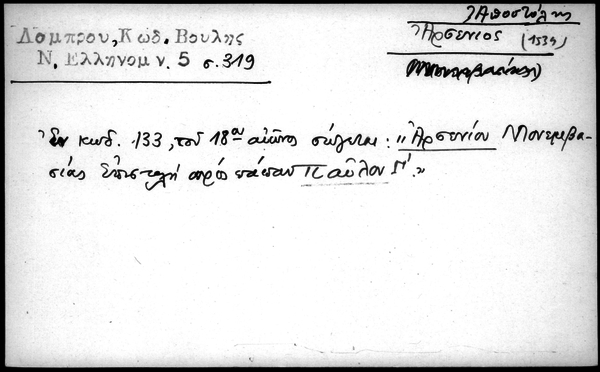 Λάμπρου, Κώδ. Βουλῆς
Ν. Ἑλληνομν. 5 σ. 319
Ἀποστόλης
Ἀρσένιος (1534)
Ἐν κωδ. 133, τοῦ 18ου αἰῶνος σώζεται: "Ἀρσενίου Μονεμβα-
σίας Ἐπιστολή πρός πάπαν Παῦλον Γ'."